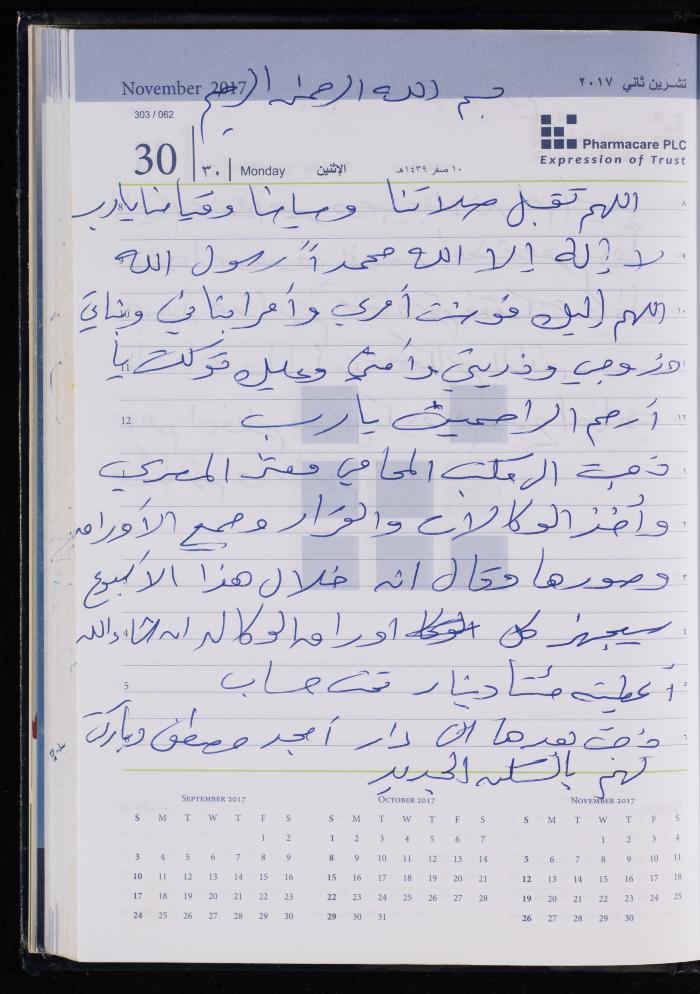 November 2017
تشرين ثاني ٢٠١٧
بسم الله الرحمن الرحيم
303 / 062
Pharmacare PLC
Expression of Trust
30
٣٠
Monday
الإثنين
١٠ صفر ١٤٣٩هـ
٨ اللهم تقبل صلاتنا وصيامنا وقيامنا يا رب 8
٩ لا إله إلا الله محمد رسول الله
١٠ اللهم إليك فوضت أمري وأمر ابنائي وبناتي
١١ وزوجي وذريتي وأمتي وعليك توكلت يا 11
١٢ أرحم الراحمين يا رب 12
١ ذهبت الى مكتب المحامي معتز المصري
٢ وأخذ الوكالات والقرار وجميع الأوراق
٣ وصورها وقال انه خلال هذا الاسبوع
٤ سيجهز كل اوراق الوكالة ان شاء الله 4
٥ أعطيته مئتا دينار تحت حساب 5
٦ ذهبت بعدها الى دار أمجد مصطفى وباركت
لهم بالسكن الجديد
SEPTEMBER 2017
S M T W T F S
1 2
3 4 5 6 7 8 9
10 11 12 13 14 15 16
17 18 19 20 21 22 23
24 25 26 27 28 29 30
OCTOBER 2017
S M T W T F S
1 2 3 4 5 6 7
8 9 10 11 12 13 14
15 16 17 18 19 20 21
22 23 24 25 26 27 28
29 30 31
NOVEMBER 2017
S M T W T F S
1 2 3 4
5 6 7 8 9 10 11
12 13 14 15 16 17 18
19 20 21 22 23 24 25
26 27 28 29 30